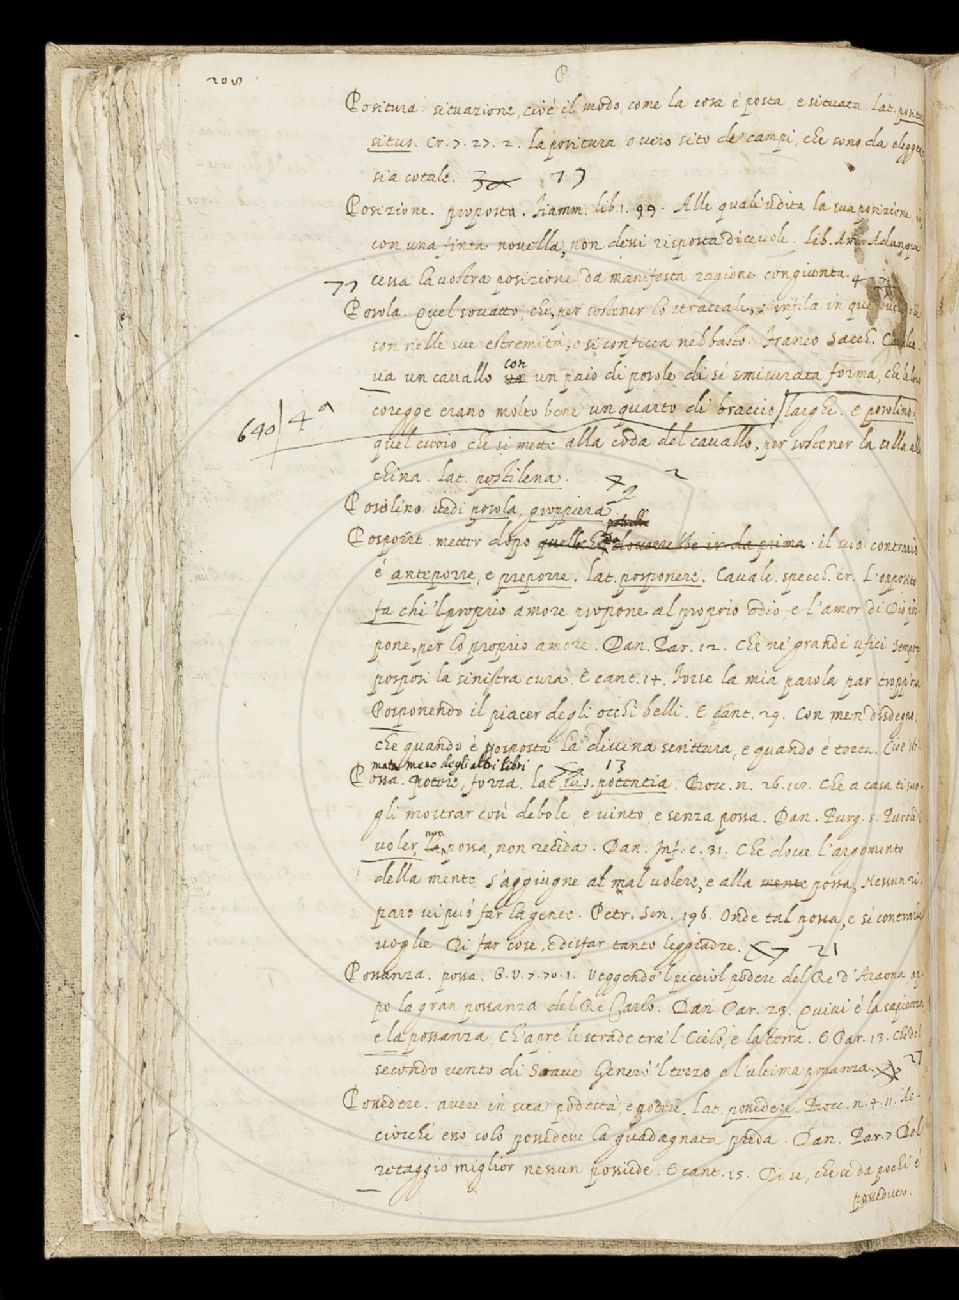 208
P
Positura. situazione, cioè il modo, come la cosa è posta, e situata. lat. positu
situs. Cr. 7. 27. 2. La positura, o vero sito de' campi, che sono da elegger
sia cotale.
13
Posizione. proposta. Fiamm. lib. 1. 99. Alle quali udita la sua posizione, io
con una finta novella, non diessi risposta dicevole. Lib.
cessa la vostra posizione da manifesta ragione congiunta.
Posola. Quel sovatto, che, per sostener lo straccale, s' infila in que'
son nelle sue estremità, e si conficca nel basto. Franco Sacch. Cavalca-
va un cavallo con un paio di posole di sì smisurata forma, che le loro
coregge erano molto bene un quarto di braccio larghe. e posolino:
640 4ª
quel cuoio che si mette alla coda del cavallo, per sostener la sella alla
china. lat. postilena.
2
Posolino. vedi posola, groppiera.
Posporre. metter dopo quello che dovrebbe ir da prima. il suo contrario
è anteporre, e preporre. lat. posponere. Cavalc. specch. cr. L'opposito
fa chi 'l proprio amore propone al proprio odio, e l'amor di Dio
pone, per lo proprio amore. Dan. Par. 12. Che ne' grandi ufici sempre
posposi la sinistra cura. E cant. 14. Forse la mia parola par troppo
Posponendo il piacer degli occhi belli. E cant. 29. Con men disdegno,
che quando è posposta la divina scrittura, e quando è torta.
13
Possa. potere, forza. lat. potentia. Bocc. n. 26. Che a casa ti suo-
gli mostrar così debole, e vinto, e senza possa. Dan. Purg. 5.
voler non possa, non recida. Dan. Inf. c. 31. Chè dove l'argomento
della mente s'aggiugne al mal volere, e alla mente possa, Nessun ri-
paro vi può far la gente. Petr. Son. 196. Onde tal possa, e sì contrarie
voglie Di far cose, e disfar tanto leggiadre.
21
Possanza. possa. G. V. 7. 70. 1. Veggendo 'l picciol podere del Re d' Araona,
po la gran possanza del Re Carlo. Dan. Par. 23. Quivi è la sapienza,
e la possanza, Ch'aprì le strade tra 'l Cielo, e la terra. E Par. 13. Che del
secondo vento di Soave Generò 'l terzo e l'ultima possanza.
27
Possedere. avere in sua podestà, e podere, lat. possidere. Bocc. n. 4. 11. Ac-
ciocchè esso solo possedesse la guadagnata preda. Dan. Par. 7 Del
retaggio miglior nessun possiede. E cant. 15. Di se, che se da pochi è
posseduto.